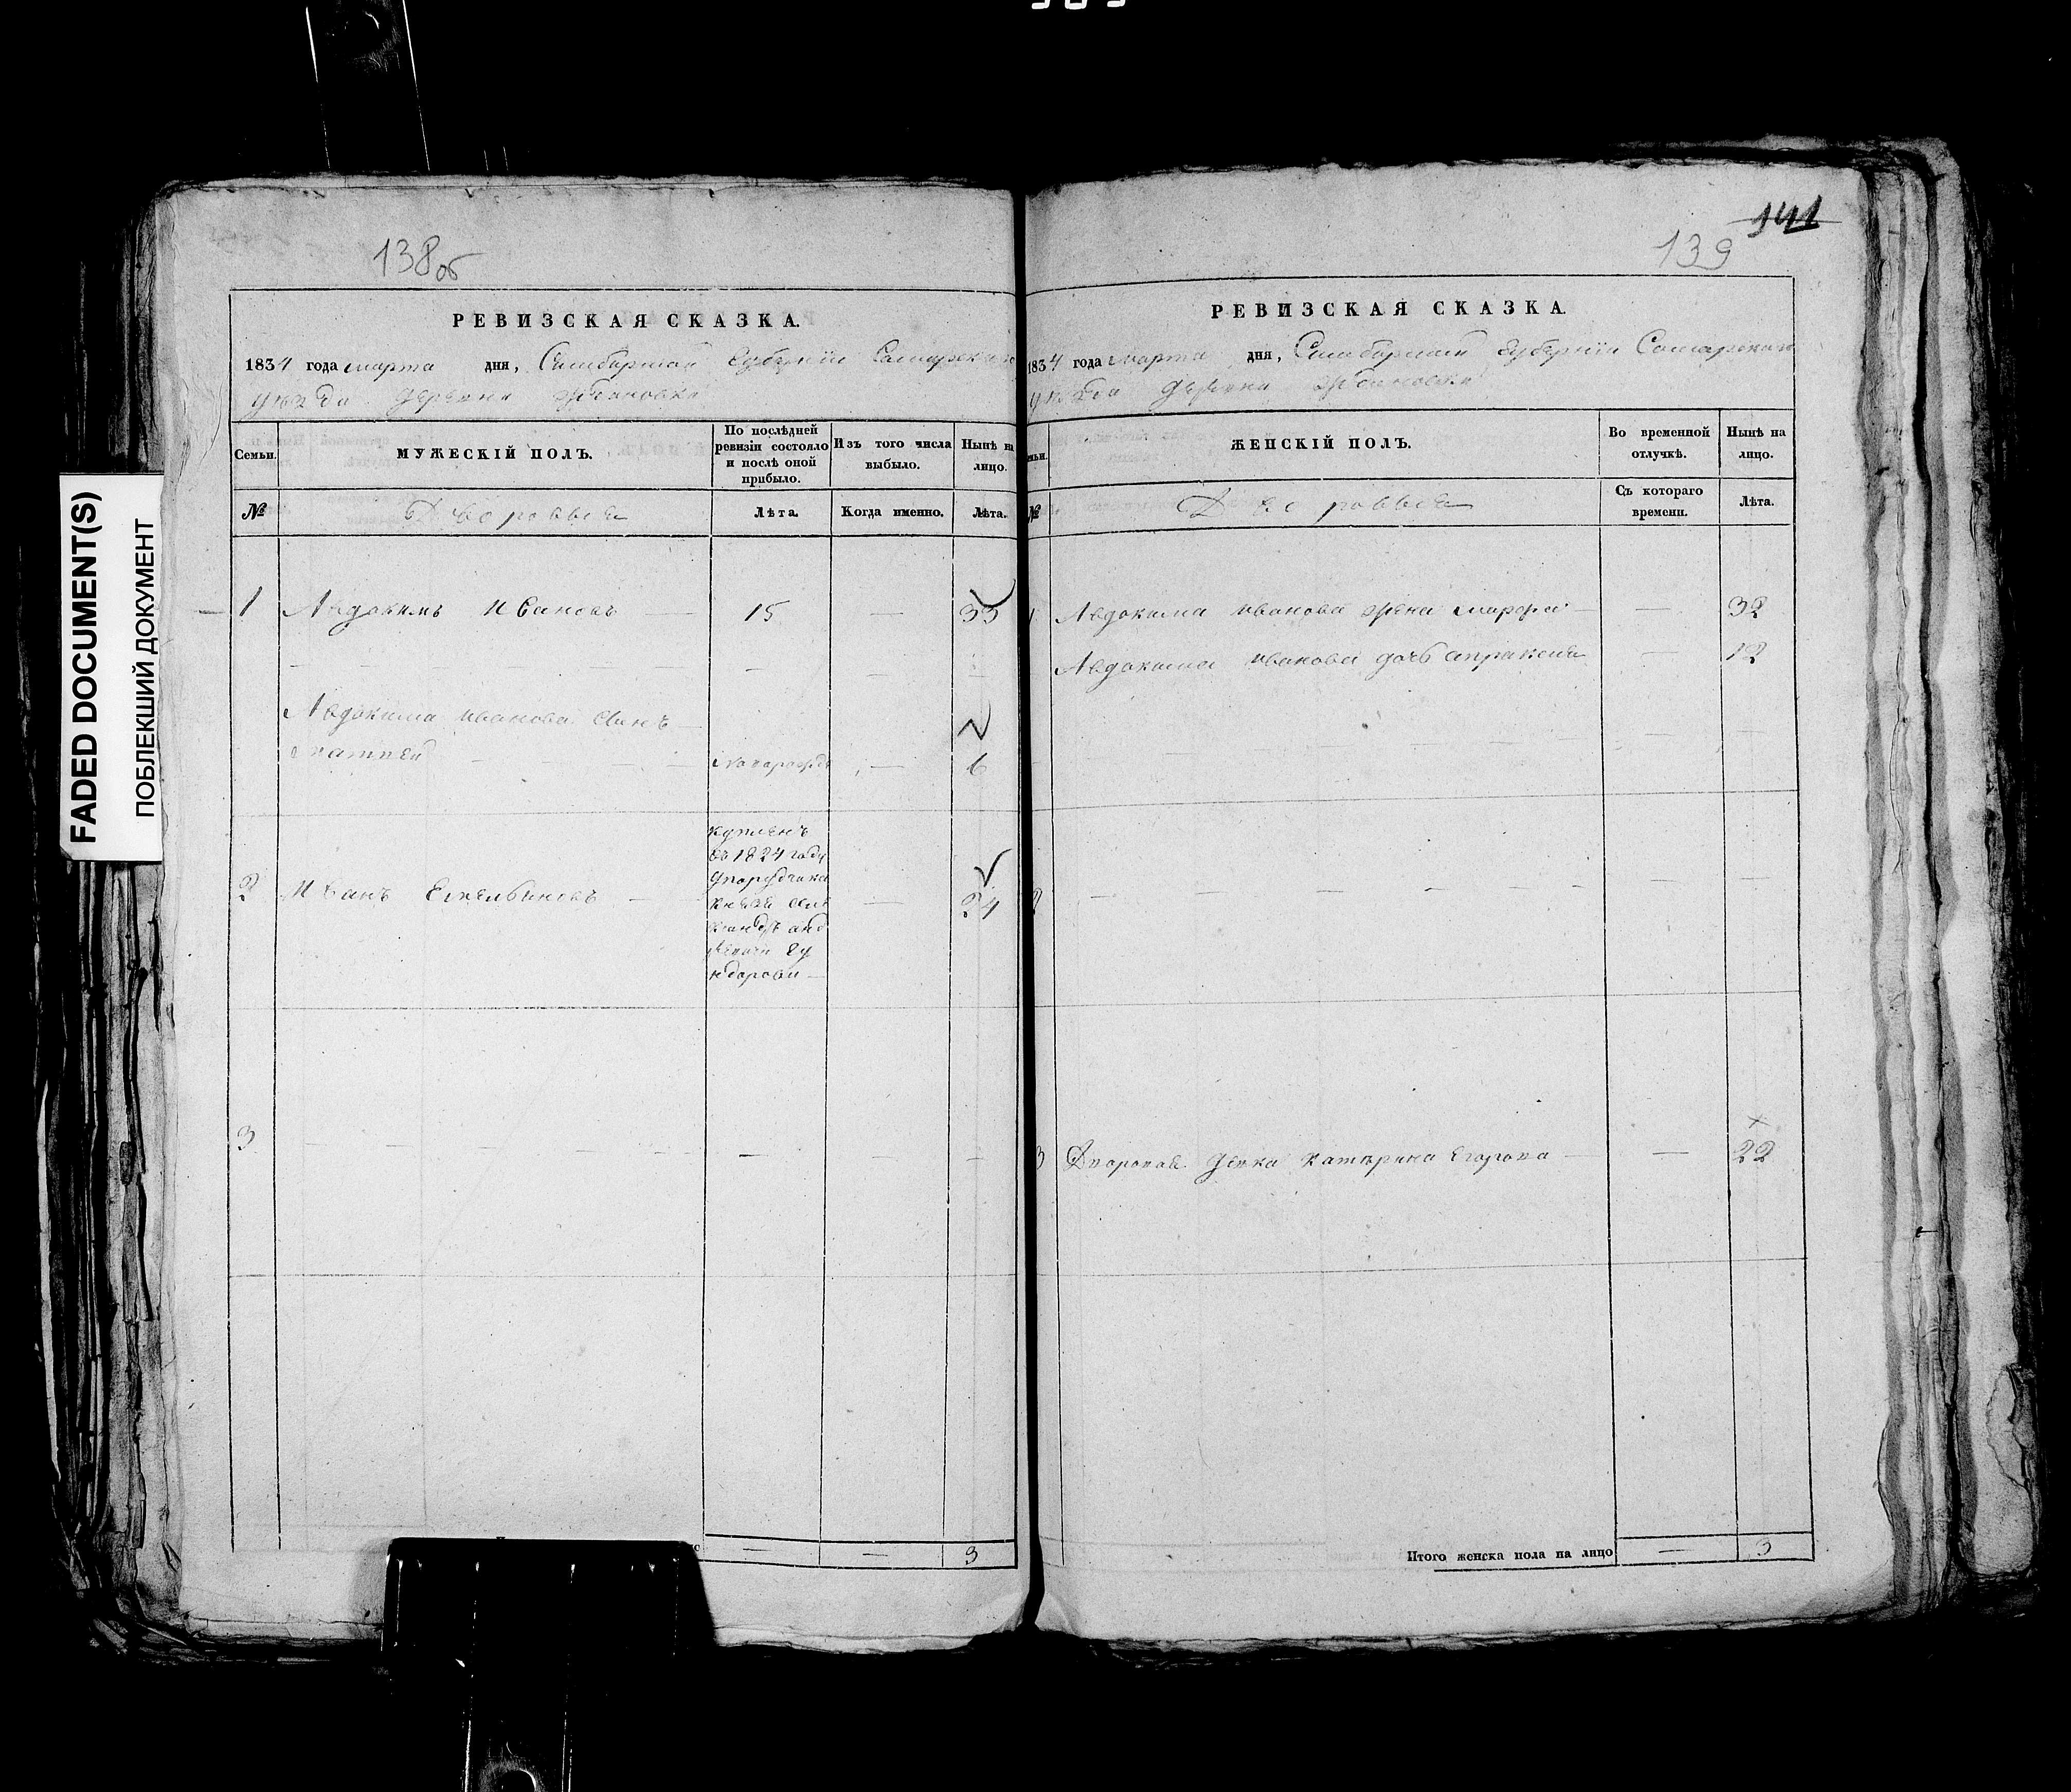 FADED DOCUMENT(S)
ПОБЛЕКШИЙ ДОКУМЕНТ
138 об
РЕВИЗСКАЯ СКАЗКА.
1834 года марта дня, Симбирской губернии Самарскаго
уезда деревни
Семьи. МУЖЕСКІЙ ПОЛЪ. По послѣдней ревизіи состояло и послѣ оной прибыло. Изъ того числа выбыло. Нынѣ на лицо.
№ Дворовыя Лѣта. Когда именно. Лѣта.
1 Авдокимъ Ивановъ — 15 — 33
Авдокима Иванова сынъ —
матвей — новорожд — 6
2 Иванъ — купленъ
въ 1824 году
упорутчика
князя
— 24
3 — — —
3
141
139
РЕВИЗСКАЯ СКАЗКА.
1834 года марта дня, Симбирской губернии Самарскаго
уезда деревни
ЖЕНСКІЙ ПОЛЪ. Во временной отлучкѣ. Нынѣ на лицо.
№ Дворовыя Съ котораго времени. Лѣта.
1 Авдокима иванова жена марфа — 32
Авдокима иванова дочь апраксия — 12
2 — — —
3 Дворовая девка катерина Егорова — 22
Итого женска пола на лицо — 3